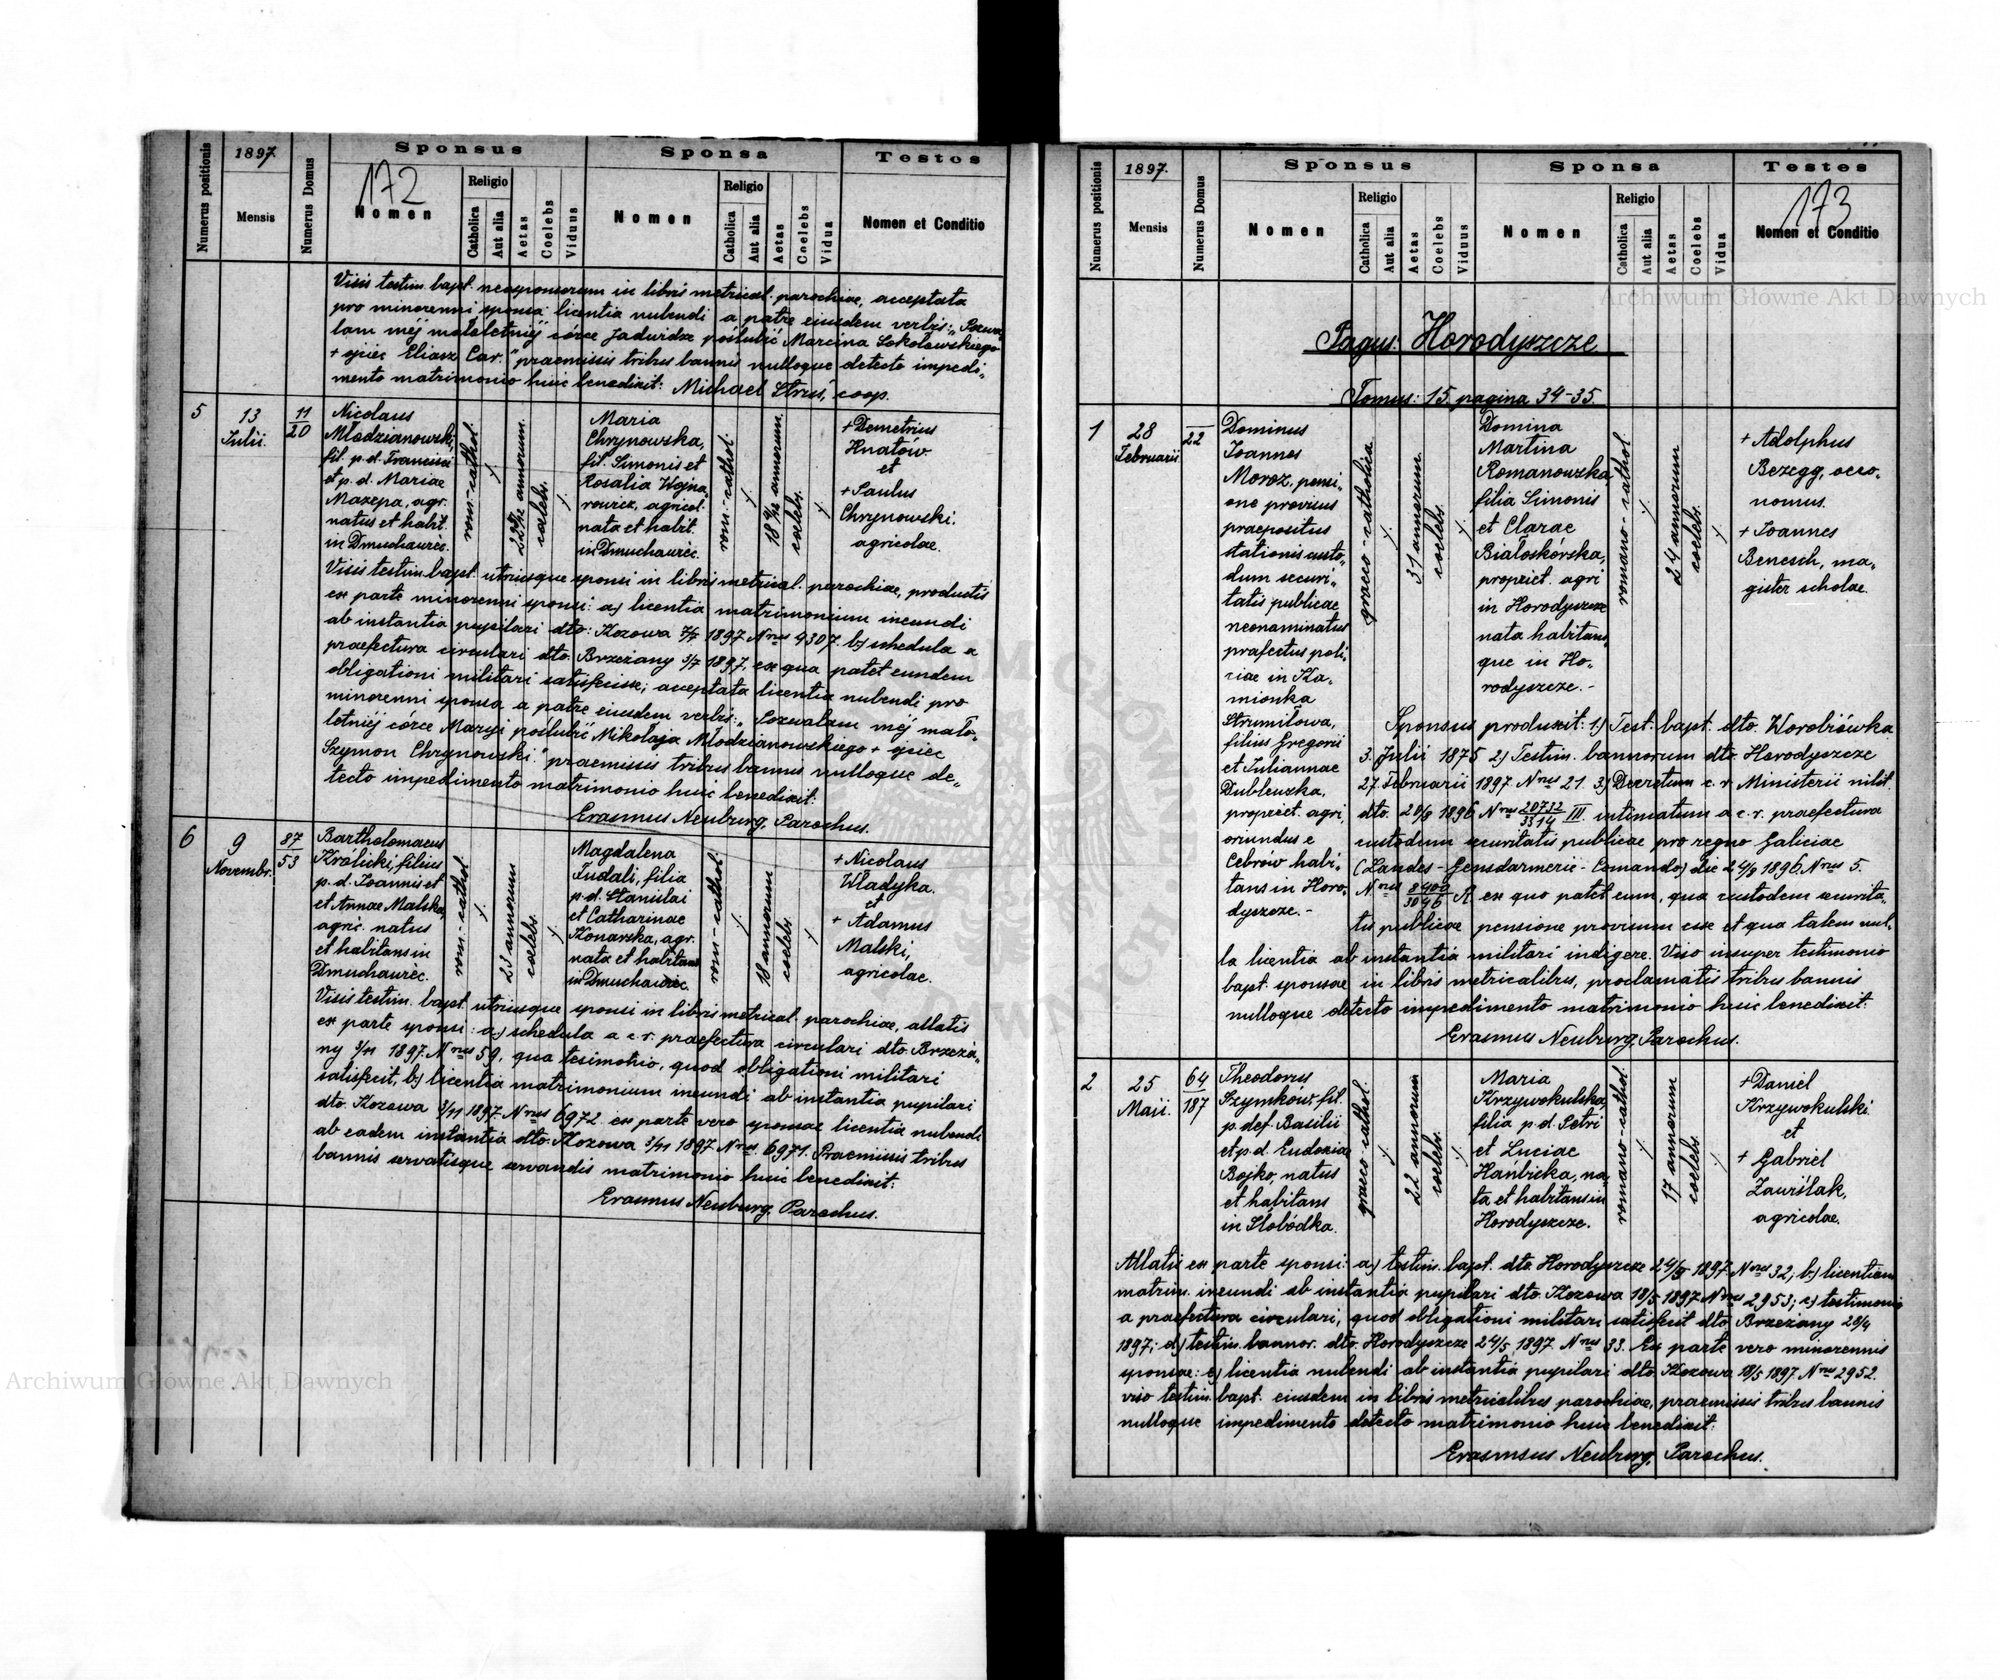 Numerus positionis
1897.
Mensis
Numerus Domus
Sponsus
172
Nomen
Religio
Catholica
Aut alia
Aetas
Coelebs
Viduus
Sponsa
Nomen
Religio
Catholica
Aut alia
Aetas
Coelebs
Vidua
Testes
Nomen et Conditio
Visis testim. bapt. neosponsorum in libris metrical. parochiae, acceptata
pro minorenni sponsa licentia nubendi a patre eiusdem verbis: „Pozwa„
lam mej małoletniej córce Jadwidze poślubić Marcina Sokołowskiego
+ ojciec Eliasz Car." praemissis tribus bannis nulloque detecto impedi„
mento matrimonio huic benedixit: Michael Struś, coop.
5
13
Julii.
11
20
Nicolaus
Młodzianowski,
fil. p. d. Francisci
et p. d. Mariae
Mazepa, agr.
natus et habit.
in Dmuchawiec.
rom.-cathol.
22 annorum.
coelebs.
Maria
Chrynowska,
fil. Simonis et
Rosalia Wojna„
rowicz, agricol.
nata et habit.
in Dmuchawiec.
rom.-cathol.
18 annorum.
coelebs.
+ Demetrius
Hnatów
et
+ Paulus
Chrynowski.
agricolae.
Visis testim. bapt. utriusque sponsi in libris metrical. parochiae, productis
ex parte minorenni sponsi: a) licentia matrimonium ineundi
ab instantia pupilari dto: Kozowa 7/7 1897 Nrus 4307. b) schedula a
praefectura circulari dto. Brzeżany 3/7 1897, ex qua patet eundem
obligationi militari satisfecisse; acceptata licentia nubendi pro
minorenni sponsa a patre eiusdem verbis: „Pozwalam mej mało„
letniej córce Maryi poślubić Mikołaja Młodzianowskiego + ojciec
Szymon Chrynowski." praemissis tribus bannis nulloque de„
tecto impedimento matrimonio huic benedixit:
Erasmus Neuburg, Parochus.
6
9
Novembr.
87
53
Bartholomaeus
Królicki, filius
p. d. Joannis et
et Annae Malska,
agric. natus
et habitans in
Dmuchawiec.
rom.-cathol.
23 annorum
coelebs.
Magdalena
Fudali, filia
p. d. Stanislai
et Catharinae
Konarska, agr.
nata et habitans
in Dmuchawiec.
rom-cathol.
18 annorum
coelebs.
+ Nicolaus
Władyka.
et
+ Adamus
Malski,
agricolae.
Visis testim. bapt. utriusque sponsi in libris metrical. parochiae, allatis
ex parte sponsi: a) schedula a c. r. praefectura circulari dto. Brzeża„
ny 3/11 1897. Nrus 59, qua tesimonio, quod obligationi militari
satisfecit, b) licentia matrimonium ineundi ab instantia pupilari
dto. Kozowa 3/11 1897. Nrus 6972. ex parte vero sponsae licentia nubendi
ab eadem instantia dto. Kozowa 3/11 1897 Nrus. 6971. Praemissis tribus
bannis servatisque servandis matrimonio huic benedixit:
Erasmus Neuburg, Parochus.
Archiwum Główne Akt Dawnych
Numerus positionis
1897.
Mensis
Numerus Domus
Sponsus
Nomen
Religio
Catholica
Aut alia
Aetas
Coelebs
Viduus
Sponsa
Nomen
Religio
Catholica
Aut alia
Aetas
Coelebs
Vidua
Testes
173
Nomen et Conditio
Archiwum Główne Akt Dawnych
Pagus Horodyszcze
Tomus: 15. pagina 34-35.
1
28
Februarii
22
Dominus
Joannes
Moroz, pensi„
one provisus
praepositus
stationis custo„
dum securi„
tatis publicae
neonaminatus
praefectus poli„
ciae in Ka„
mionka
Strumiłowa,
filius Gregorii
et Juliannae
Dubleuzka,
propriet. agri,
oriundus e
Cebrów habi„
tans in Horo„
dyszcze.-
graeco-catholica
31 annorum.
coelebs
Domina
Martina
Romanowska
filia Simonis
et Clarae
Białoskórska,
propriet. agri
in Horodyszcze
nata habitans„
que in Ho„
rodyszcze.-
romano-cathol
24 annorum
coelebs.
+ Adolphus
Bezegg, oeco„
nomus.
+ Joannes
Benesch, ma„
gister scholae.
Sponsus produxit: 1) Test. bapt. dto. Worobiówka
3. Julii 1875 2) Testim. bannorum dto. Horodyszcze
27. Februarii 1897 Nrus 21. 3) Decretum c. r. Ministerii milit.
dto. 20/8 1896 Nrus 20732/3314 III. intimatum a c. r. praefectura
custodum securitatis publicae pro regno Galiciae
(Landes-Gensdarmerie-Comando) die 24/8 1896. Nrus 5.
Nrus 8400/3046 A ex quo patet eum, qua custodem securita„
tis publicae pensione provisum esse et qua talem nul„
la licentia ab instantia militari indigere. Viso insuper testimonio
bapt. sponsae in libris metricalibus, proclamatis tribus bannis
nulloque detecto impedimento matrimonio huic benedixit:
Erasmus Neuburg, Parochus.
2
25
Maii.
64
187
Theodorus
Szymków, fil.
p. def. Basilii
et p. d. Eudoxiae
Bojko, natus
et habitans
in Słobódka.
graeco-cathol.
22 annorum
coelebs.
Maria
Krzywokulska,
filia p. d. Petri
et Luciae
Hanbicka, na„
ta et habitans in
Horodyszcze.
romano-cathol
17 annorum
coelebs.
+ Daniel
Krzywokulski
et
+ Gabriel
Zawiślak,
agricolae.
Allatis ex parte sponsi: a) testim. bapt. dto. Horodyszcze 24/5 1897. Nrus 32; b) licentiam
matrim. ineundi ab instantia pupilari dto. Kozowa 18/5 1897 Nrus 2953; c) testimonio
a praefectura circulari, quod obligationi militari satisfecit dto. Brzeżany 28/4
1897; d) testim. bannor. dto. Horodyszcze 24/5 1897. Nrus 33. Ex parte vero minorennis
sponsae: e) licentia nubendi ab instantia pupilari dto. Kozowa 18/5 1897. Nrus 2952.
viso testim. bapt. eiusdem in libris metricalibus parochiae, praemissis tribus bannis
nulloque impedimento detecto matrimonio huic benedixit:
Erasmsus Neuburg, Parochus.